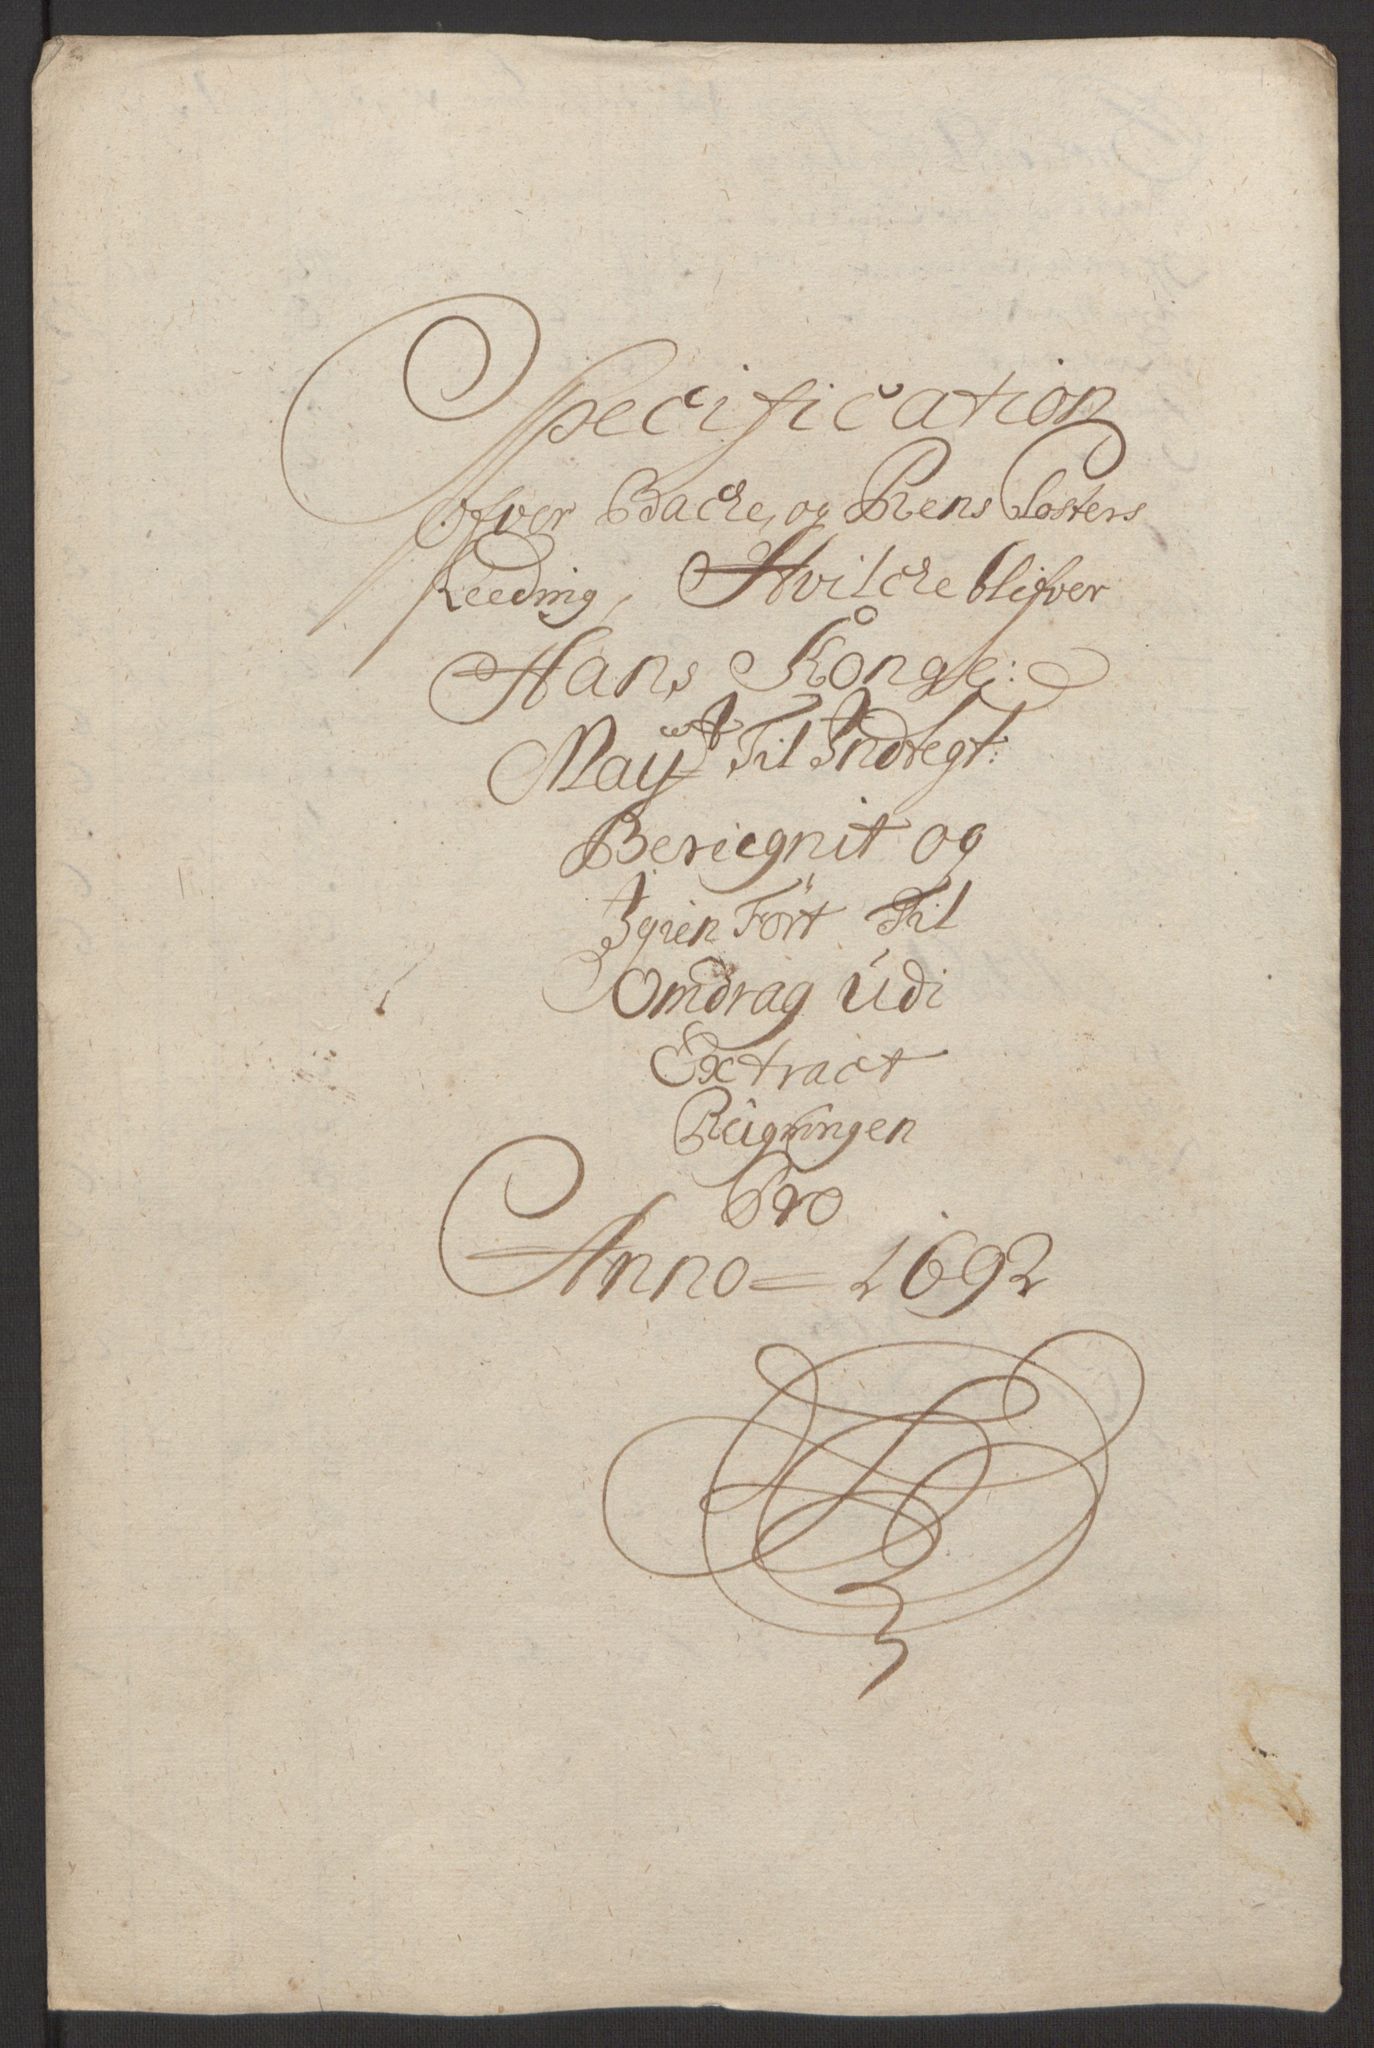 Specification
Ofver Backe, og Reens Closters
Leeding, Hvilche blifver
Hans Konge:
May:tt Til Indtegt:
Beriegnit og
Igien Ført Til
Omdrag Udi
Extract
Reigningen
Pro
Anno = 1692